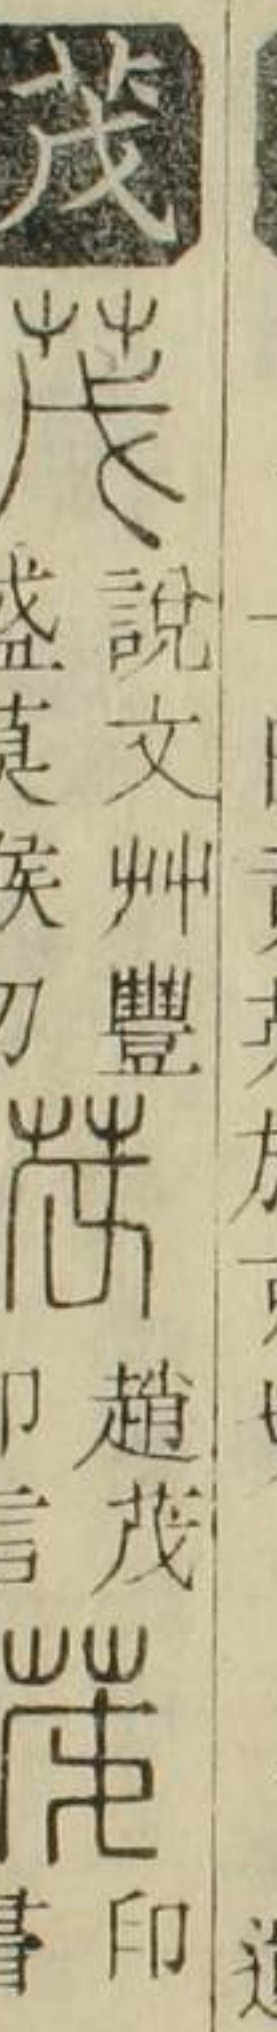 茂
茂
說文艸豐
盛莫候切
茂
趙茂
印信
茂
印
書